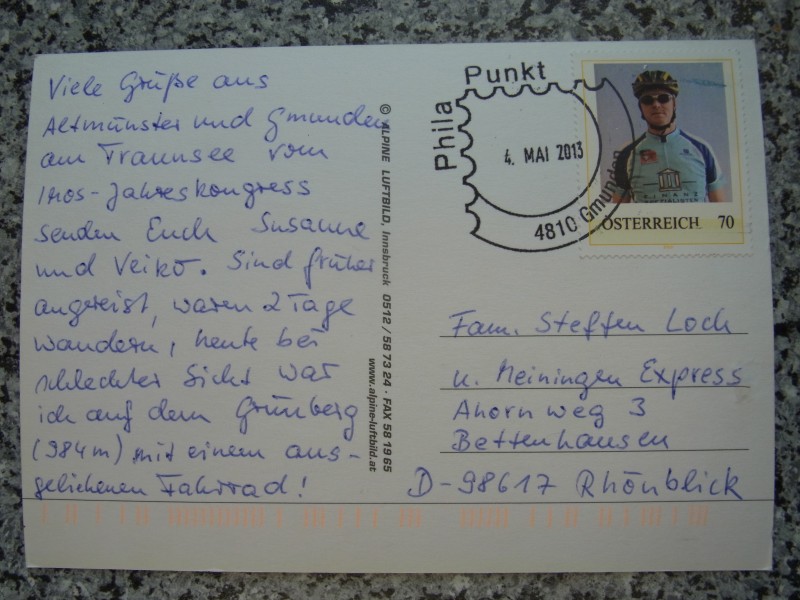 Viele Grüße aus
Altmünster und Gmunden
am Traunsee vom
IMOS-Jahreskongress
senden Euch Susanne
und Veiko. Sind früher
angereist, waren 2 Tage
wandern, heute bei
schlechter Sicht war
ich auf dem Grünberg
(984m) mit einem aus-
geliehenen Fahrrad!
© ALPINE LUFTBILD, Innsbruck 0512 / 58 73 24 · FAX 58 19 65
www.alpine-luftbild.at
Phila Punkt
4. MAI 2013
4810 Gmunden
FINANZ
ÖSTERREICH 70
Fam. Steffen Loch
u. Meiningen Express
Ahornweg 3
Bettenhausen
D-98617 Rhönblick